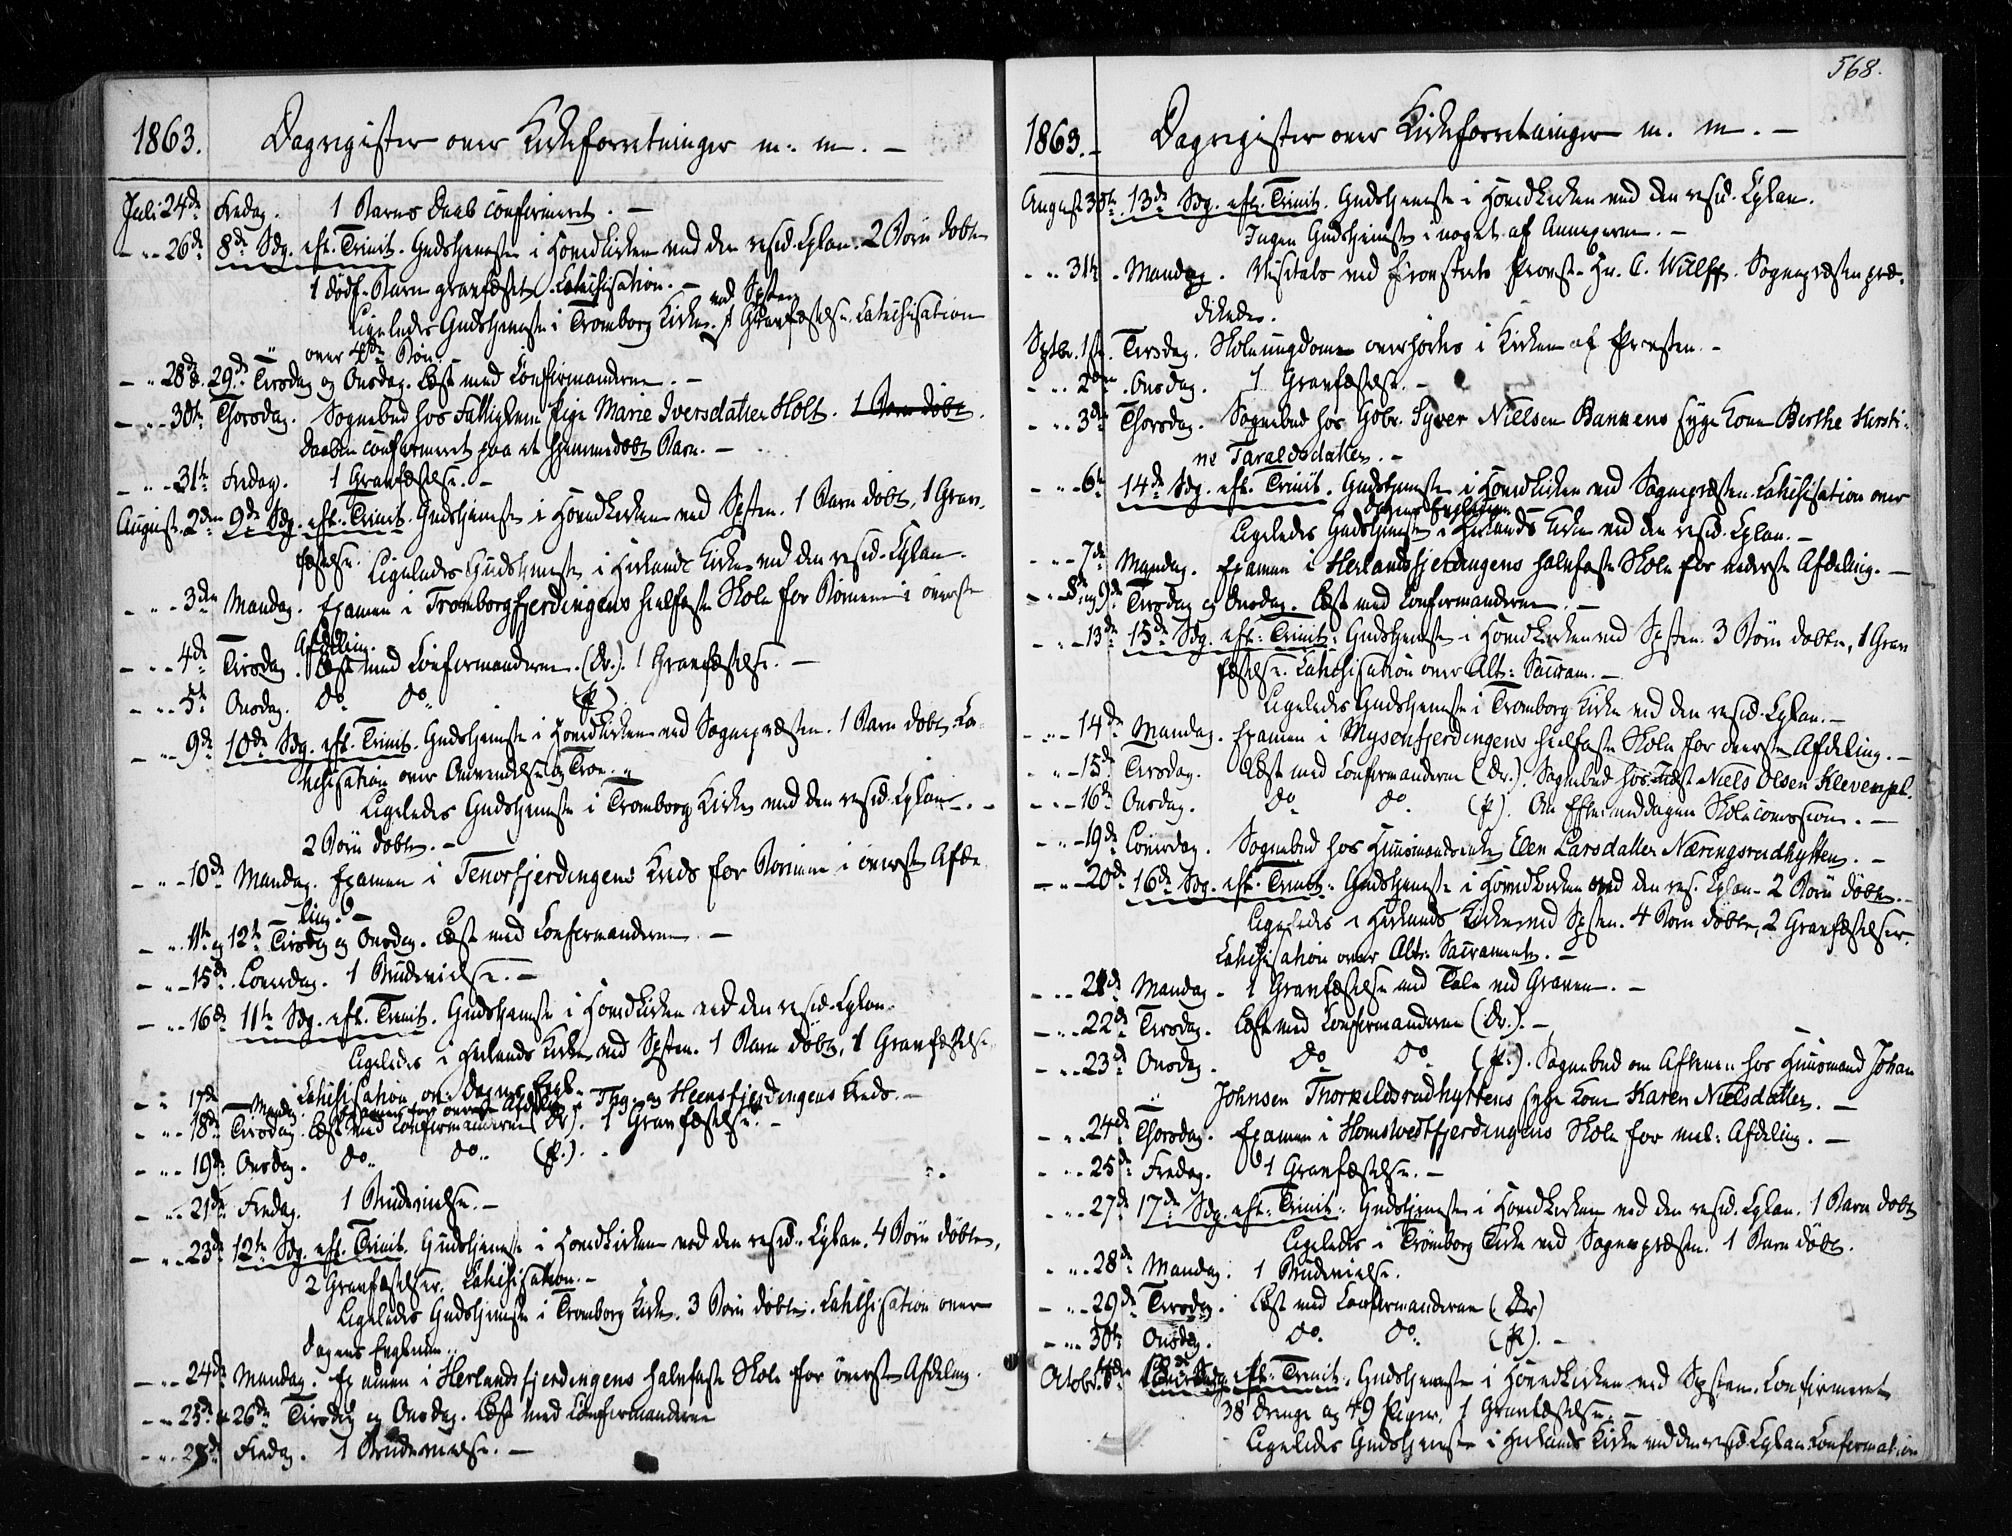 1863. Dagregister over Kirkeforretninger m. m. —
Juli 24de Fredag. 1 Barns Daab confirmeret. —
— „ - 26de 8de Sdg. eft. Trinit. Gudstjeneste i Hovedkirken ved den resid. Cplan. 2 Børn døbte
1 dødf. Barn gravfæstet. Catechisation. —
ved Spsten
Ligeledes Gudstjeneste i Tromborg Kirke. 1 Gravfæstelse. Catechisation
over 4de Bøn. —
— „ 28de. 29de Tirsdag og Onsdag. Læst med Confirmanderne. —
— „ - 30te Thorsdag. Sognebud hos Fattiglem Pige Marie Iversdatter Holt. 1 Barn døbt.
Daaben confirmeret paa et hjemmedøbt Barn. —
— „ - 31te Fredag. 1 Gravfæstelse. —
August. 2den 9de Sdg. eft. Trinit. Gudstjeneste i Hovedkirken ved Spsten. 1 Barn døbt, 1 Grav-
fæstelse. Ligeledes Gudstjeneste i Herlands Kirke ved den resid. Cplan.
- „ - 3die Mandag. Examen i Tromborgfjerdingens heelfaste Skole for Børnene i øverste
Afdeling.
— „ - 4de Tirsdag. Læst med Confirmanderne. (Dr.). 1 Gravfæstelse. —
- „ - 5te Onsdag. do do (P.)
— „ - 9de 10de Sdg. eft. Trinit. Gudstjeneste i Hovedkirken ved Sognepræsten. 1 Barn døbt. Ca-
techisation over Omvendelse og Troe. „
Ligeledes Gudstjeneste i Tromborg Kirke ved den resid. Cplan. —
2 Børn døbte. —
- „ - 10de Mandag. Examen i Tenorfjerdingens Kreds for Børnene i øverste Afde-
ling. —
— „ - 11te og 12te Tirsdag og Onsdag. Læst med Confirmanderne. —
— „ - 15de Løverdag. 1 Brudevielse. —
— „ - 16de 11te Sdg. eft. Trinit. Gudstjeneste i Hovedkirken ved den resid. Cplan.
Ligeledes i Herlands Kirke ved Spsten. 1 Barn døbt, 1 Gravfæstelse.
Catechisation ov. Dagens Evgl.
- „ 17de — Mandag. Examen for øverste Afdeling i Thg. og Heensfjerdingens Kreds. —
- „ - 18de Tirsdag. Læst med Confirmanderne (Dr). 1 Gravfæstelse. —
- „ - 19de Onsdag. do do (P.).
- „ - 21de Fredag. 1 Brudevielse. —
— „ - 23de 12te Sdg. eft. Trinit. Gudstjeneste i Hovedkirken ved den resid. Cplan. 4 Børn døbte,
2 Gravfæstelser. Catechisation. —
Ligeledes Gudstjeneste i Tromborg Kirke. 3 Børn døbte. Catechisation over
Dagens Evglium.
— „ - 24de Mandag. Examen i Herlandsfjerdingens halvfaste Skole for øverste Afdeling.
- „ 25de & 26de Tirsdag og Onsdag. Læst med Confirmanderne
- „ - 28de Fredag. 1 Brudevielse. —
568.
1863. — Dagregister over Kirkeforretninger m. m. —
August 30te. 13de Sdg. eft. Trinit. Gudstjeneste i Hovedkirken ved den resid. Cplan.
Ingen Gudstjeneste i noget af Annexerne. —
- „ 31te. Mandag. Visitats ved Provst Hr. C. Wulff. Sognepræsten præ-
dikede.
Septbr. 1ste. Tirsdag. Skoleungdommen overhørtes i Kirken af Provsten. —
- „ - 2den. Onsdag. 1 Gravfæstelse. —
- „ - 3die Thorsdag. Sognebud hos Gbr. Syver Nielsen Bannens syge Kone Berthe Kersti-
ne Taraldsdatter. —
- „ - 6te 14de Sdg. eft. Trinit. Gudstjeneste i Hovedkirken ved Sognepræsten. Catechisation over
Dagens Evglium.
Ligeledes Gudstjeneste i Herlands Kirke ved den resid. Cplan. —
- „ - 7de Mandag. Examen i Herlandsfjerdingens halvfaste Skole for nederste Afdeling. —
- „ - 8de og 9de Tirsdag og Onsdag. Læst med Confirmanderne. —
- „ - 13de 15de Sdg. eft. Trinit. Gudstjeneste i Hovedkirken ved Spsten. 3 Børn døbte, 1 Grav-
fæstelse. Catechisation over Alt. Sacram. —
Ligeledes Gudstjeneste i Tromborg Kirke ved den resid. Cplan. —
- „ - 14de Mandag. Examen i Mysenfjerdingens heelfaste Skole for øverste Afdeling. —
- „ - 15de Tirsdag. Læst med Confirmanderne (Dr.). Sognebud hos Niels Olsen Klevenpl.
- „ - 16de Onsdag. do do (P). Om Eftermiddagen Skolecomission. —
- „ - 19de Løverdag. Sognebud hos Huusmandsenke Elen Larsdatter Næringsrudhytten. —
— „ - 20de 16de Sdg. eft. Trinit. Gudstjeneste i Hovedkirken ved den res. Cplan. 2 Børn døbte. —
Ligeledes i Herlands Kirke ved Spsten. 4 Børn døbte, 2 Gravfæstelser.
Catechisation over Alt. Sacramente. —
— „ - 21de Mandag. 1 Gravfæstelse med Tale ved Graven. —
— „ - 22de Tirsdag. Læst med Confirmanderne (Dr.). —
- „ - 23de Onsdag. do do (P.). Sognebud om Aftenen hos Huusmand Johan
Johnsen Thorkeldsrudhyttens syge Kone Karen Nielsdatter. —
- „ - 24de Thorsdag. Examen i Homstvedtfjerdingens Skole for ned. Afdeling. —
- „ - 25de Fredag. 1 Gravfæstelse. —
- „ - 27de 17de Sdg. eft. Trinit. Gudstjeneste i Hovedkirken ved den resid. Cplan. 1 Barn døbt
Ligeledes i Tromborg Kirke ved Sognepræsten. 1 Barn døbt.
- „ - 28de Mandag. 1 Brudevielse.
- „ - 29de Tirsdag. Læst med Confirmanderne (Dr)
- „ - 30te Onsdag. do do (P). —
Octobr. 4de Sdg. eft. Trinit. Gudstjeneste i Hovedkirken ved Spsten. Confirmeret
38 Drenge og 49 Piger. 1 Gravfæstelse. —
Ligeledes Gudstjeneste i Herlands Kirke ved den resid. Cplan. Confirmation